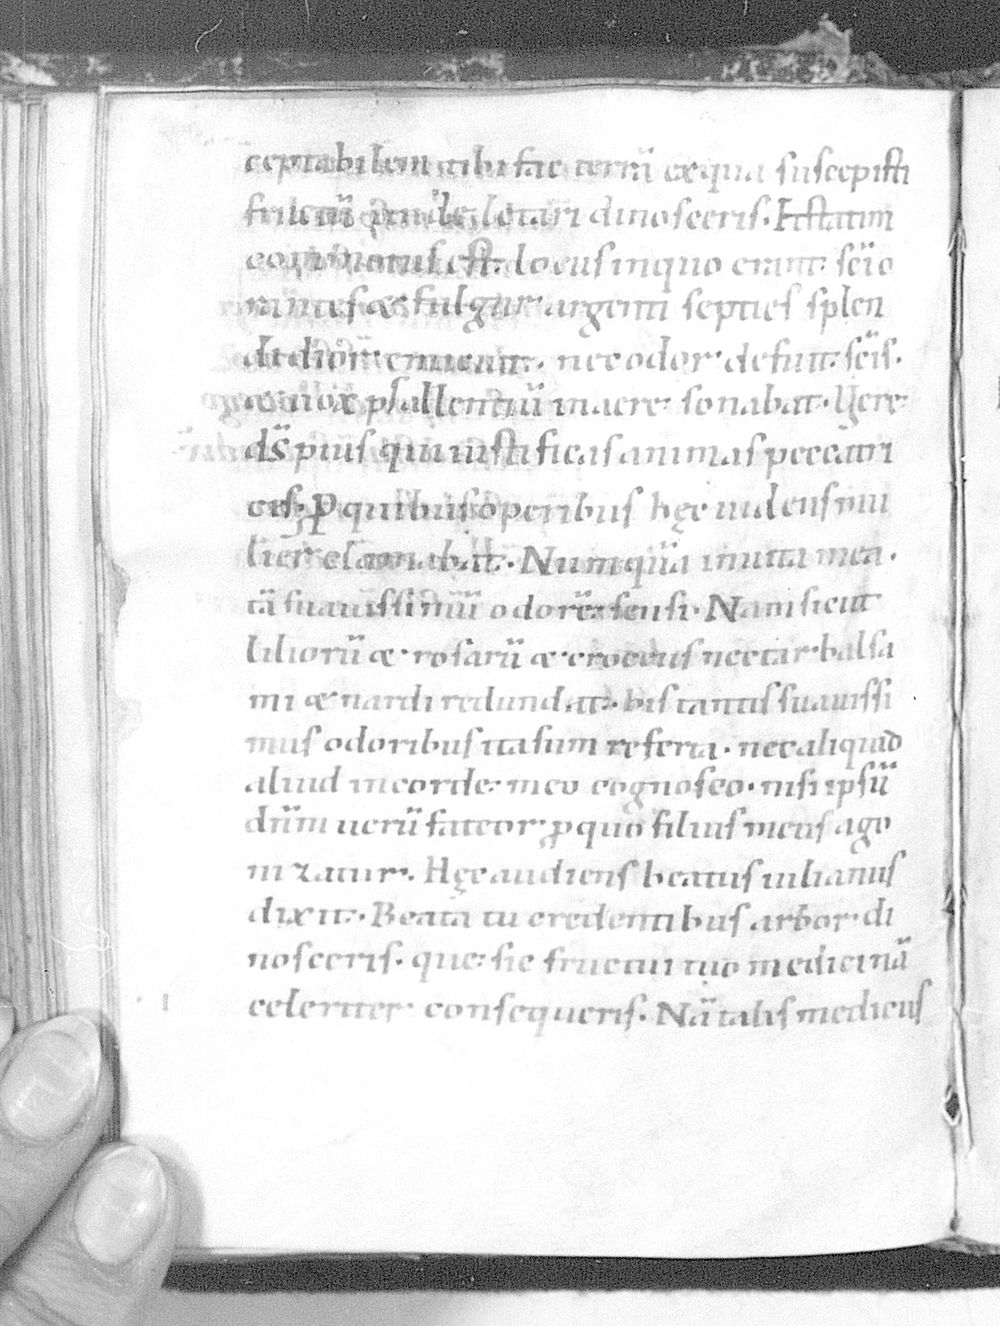 ceptabilem tibi fac terrā ex qua suscepisti
fructū delectari dinosceris. Et statim
cōmotus est locus in quo erant sc̄io
rum uestes æ fulgur argenti septies splen
didior emicuit. nec odor defuit sc̄is.
uox psallentiū in aere sonabat. Uere
ds̄ pius qui iustificas animas peccatri
ces. P̱ quibus operibus hęc uidens mu
lier clamabat. Numquā inuita mea.
tā suauissimū odorē sensi. Nam sicut
liliorū æ rosarū æ croceus nectar balsa
mi æ nardi redundat. his tantis suauissi
mus odoribus ita sum referta. nec aliquid
aliud in corde meo cognosco. nisi ipsū
dn̄m uerū fateor ꝓ quo filius meus ago
nizatur. Hęc audiens beatus iulianus
dixit. Beata tu credentibus arbor di
nosceris. que sic fructui tuo medicinā
celeriter consequeris. Nā talis medicus